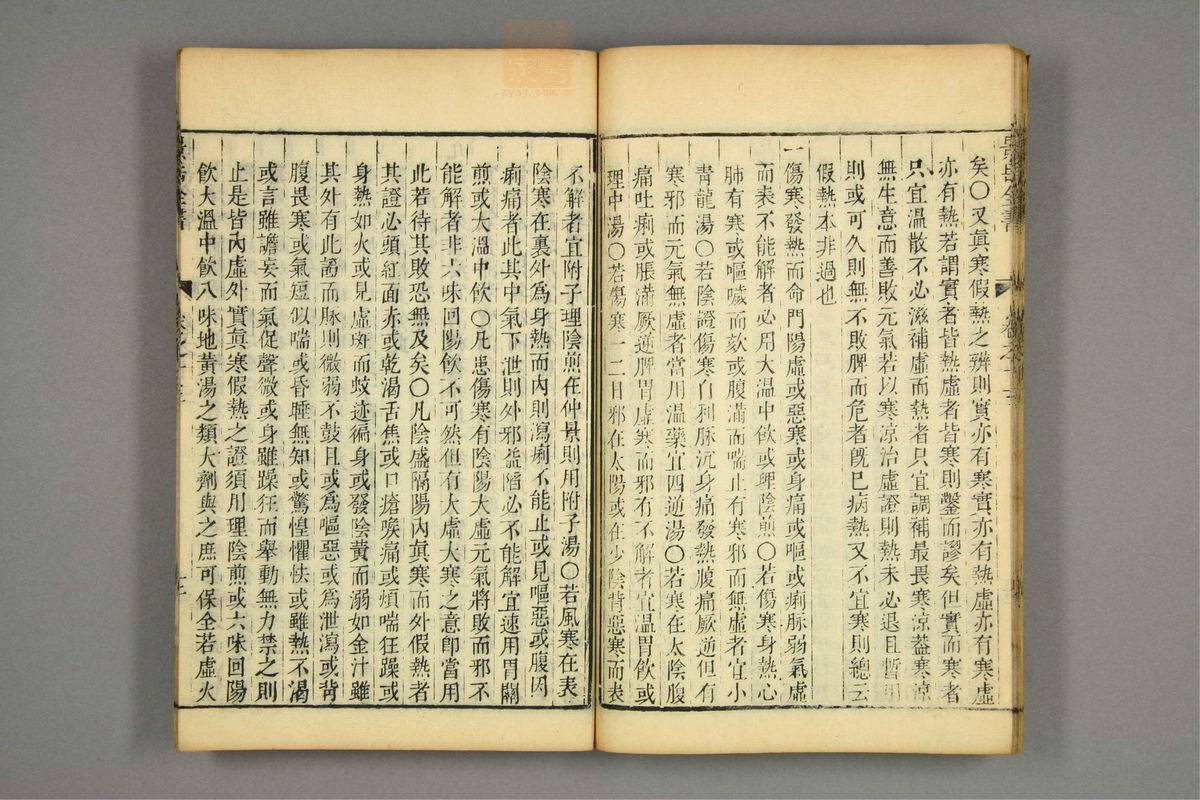 矣〇又眞寒假熱之辨則實亦有寒實亦有熱虛亦有寒虛
亦有熱若謂實者皆熱虛者皆寒則鑿而謬矣但實而寒者
只宜溫散不必滋補虛而熱者只宜調補最畏寒涼葢寒涼
無生意而善敗元氣若以寒涼治虛證則熱未必退且暫用
則或可久則無不敗脾而危者旣已病熱又不宜寒則總云
假熱本非過也
一傷寒發熱而命門陽虛或惡寒或身痛或嘔或痢脉弱氣虛
而表不能解者必用大温中飲或理陰煎〇若傷寒身熱心
肺有寒或嘔噦而欬或腹滿而喘止有寒邪而無虛者宜小
青龍湯〇若陰證傷寒自利脉沉身痛發熱腹痛厥逆但有
寒邪而元氣無虛者當用溫藥宜四逆湯〇若寒在太陰腹
痛吐痢或脹滿厥逆脾胃虛寒而邪有不解者宜溫胃飲或
理中湯〇若傷寒一二日邪在太陽或在少陰背惡寒而表
不解者宜附子理陰煎在仲景則用附子湯〇若風寒在表
陰寒在裏外爲身熱而內則瀉痢不能止或見嘔惡或腹因
痢痛者此其中氣下泄則外邪益陷必不能解宜速用胃關
煎或大溫中飲〇凡患傷寒有陰陽大虛元氣將敗而邪不
能解者非六味回陽飲不可然但有大虛大寒之意卽當用
此若待其敗恐無及矣〇凡陰盛隔陽內眞寒而外假熱者
其證必頭紅面赤或乾渴舌焦或口瘡喉痛或煩喘狂躁或
身熱如火或見虛斑而蚊迹徧身或發陰黃而溺如金汁雖
其外有此證而脉則微弱不鼓且或爲嘔惡或爲泄瀉或背
腹畏寒或氣短似喘或昏睡無知或驚惶懼怯或雖熱不渴
或言雖譫妄而氣促聲微或身雖躁狂而舉動無力禁之則
止是皆內虛外實眞寒假熱之證須用理陰煎或六味回陽
飲大溫中飲八味地黃湯之類大劑與之庶可保全若虛火